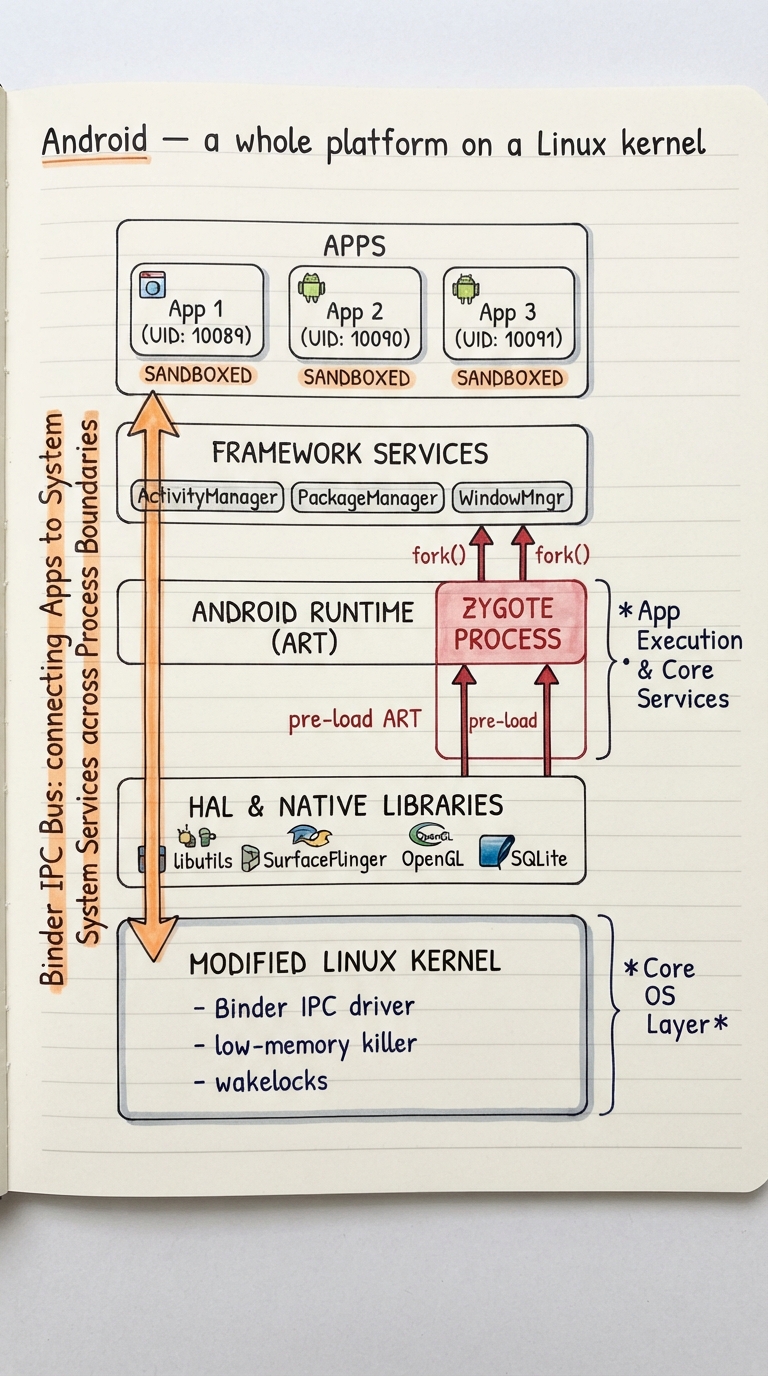 Android — a whole platform on a Linux kernel
APPS
App 1
(UID: 10089)
SANDBOXED
App 2
(UID: 10090)
SANDBOXED
App 3
(UID: 10091)
SANDBOXED
Binder IPC Bus: connecting Apps to System
System Services across Process Boundaries
FRAMEWORK SERVICES
ActivityManager
PackageManager
WindowMngr
fork()
fork()
ANDROID RUNTIME
(ART)
ZYGOTE
PROCESS
* App
Execution
& Core
Services
pre-load ART
pre-load
HAL & NATIVE LIBRARIES
libutils
SurfaceFlinger
OpenGL
OpenGL
SQLite
MODIFIED LINUX KERNEL
- Binder IPC driver
- low-memory killer
- wakelocks
* Core
OS
Layer *